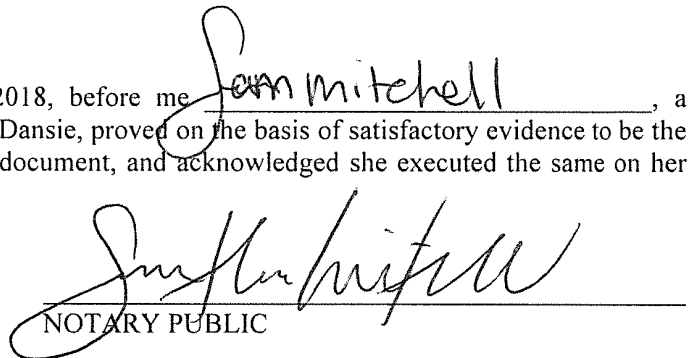 2018, before me Sam mitchell, a
Dansie, proved on the basis of satisfactory evidence to be the
document, and acknowledged she executed the same on her
NOTARY PUBLIC